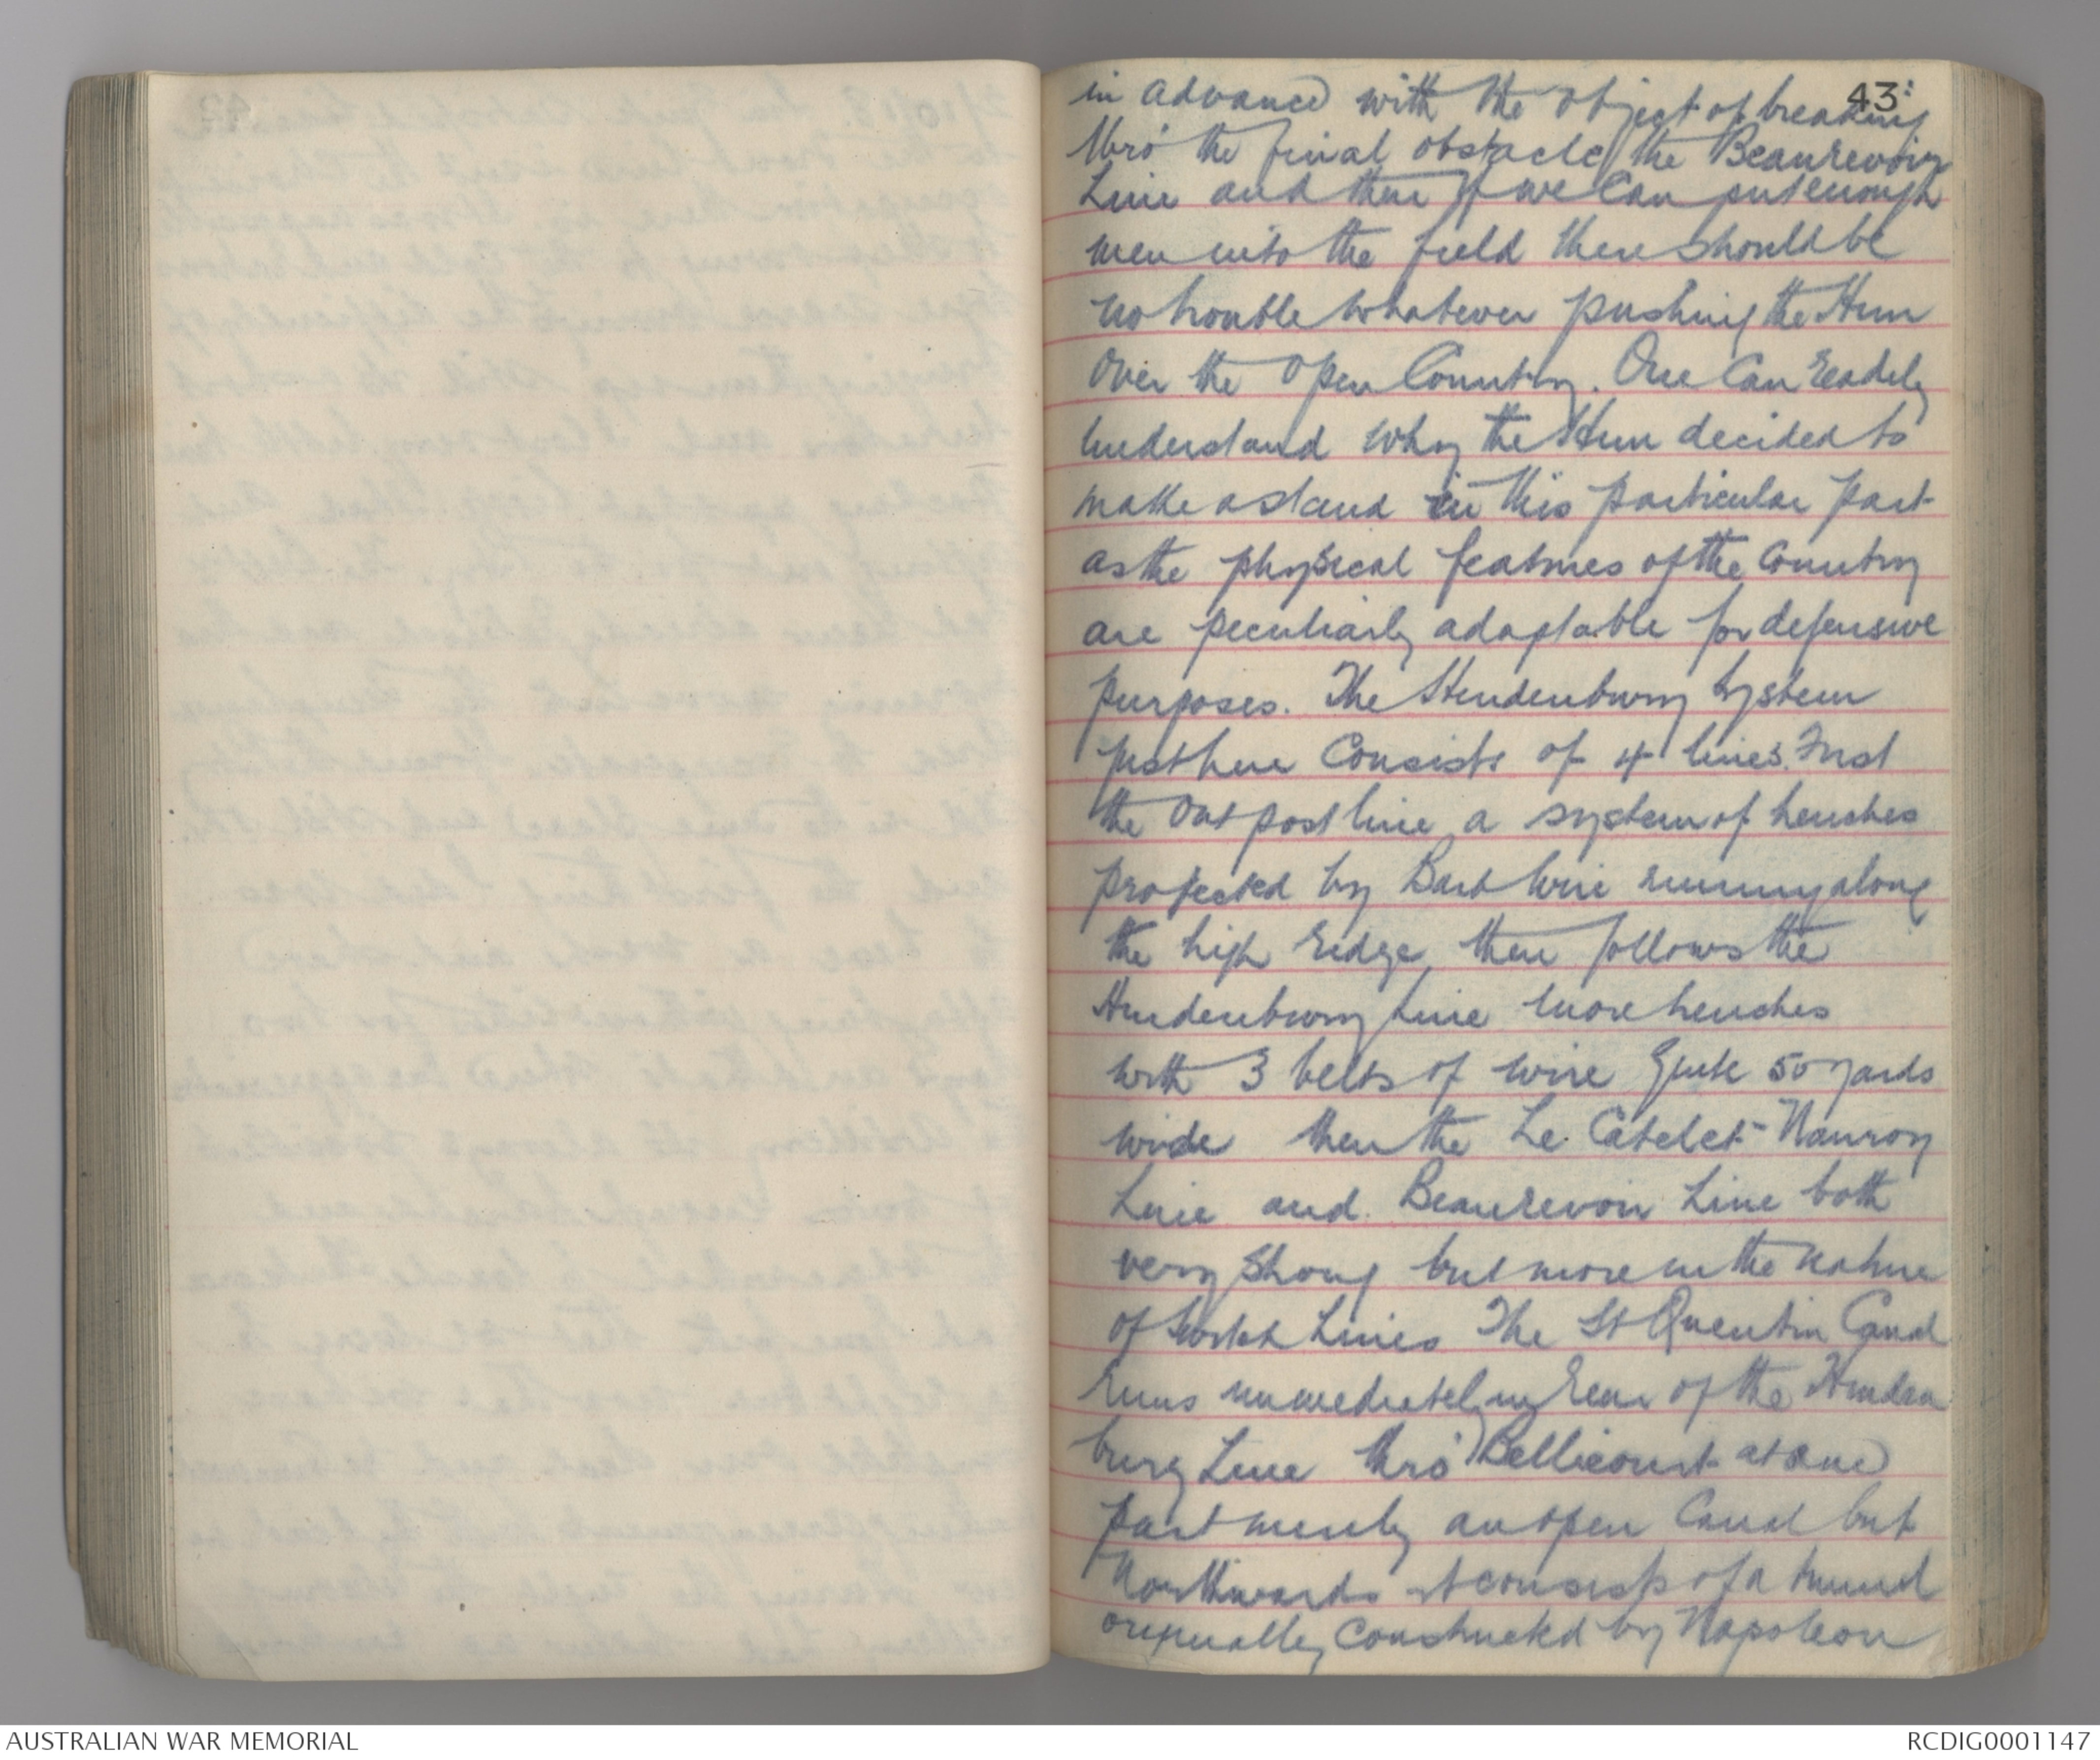 43
in advance with the object of breaking
thro' the final obstacle, the Beaurevoir
Line and then if we can put enough
men into the field there should be
no trouble whatever pushing the Hun
over the open Country. One can readily
understand why the Hun decided to
make a stand in this particular part
as the physical features of the Country
are peculiarly adaptable for defensive
purposes. The Hindenburg System
just here Consists of 4 lines. First
the Outpost line, a system of trenches
protected by Barb wire running along
the high ridge, then follows the
Hindenburg Line more trenches
with 3 belts of wire Quite 50 yards
wide then the Le Catelet-Nauroy
Line and Beaurevoir Line both
very strong but more in the nature
of Switch Lines The St Quentin Canal
runs immediately in rear of the Hinden
burg Line thro' Bellicourt at one
part merely an open Canal but
Northwards it consists of a tunnel
originally constructed by Napoleon
AUSTRALIAN WAR MEMORIAL
RCDIG0001147